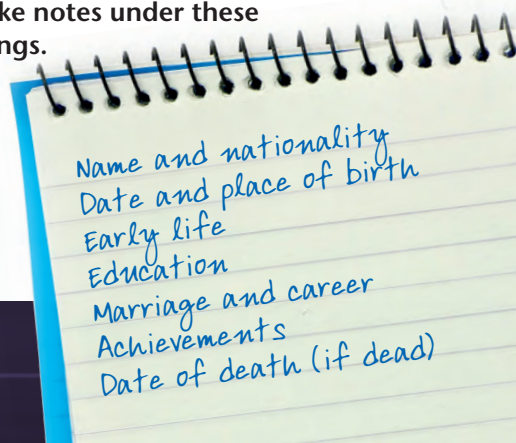 ke notes under these
ngs.
Name and nationality
Date and place of birth
Early life
Education
Marriage and career
Achievements
Date of death (if dead)